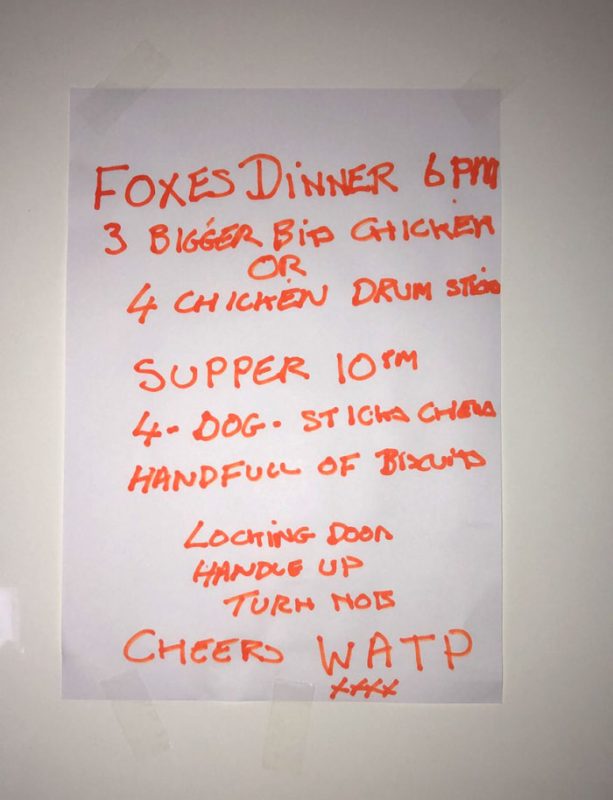 FOXES DINNER 6 PM
3 BIGGER Bits CHICKEN
OR
4 CHICKEN DRUM STICKS
SUPPER 10 PM
4 - DOG - STICKS CHEWS
HANDFULL OF BISCUITS
LOCKING DOOR
HANDLE UP
TURN NOB
CHEERS WATP
xxxx